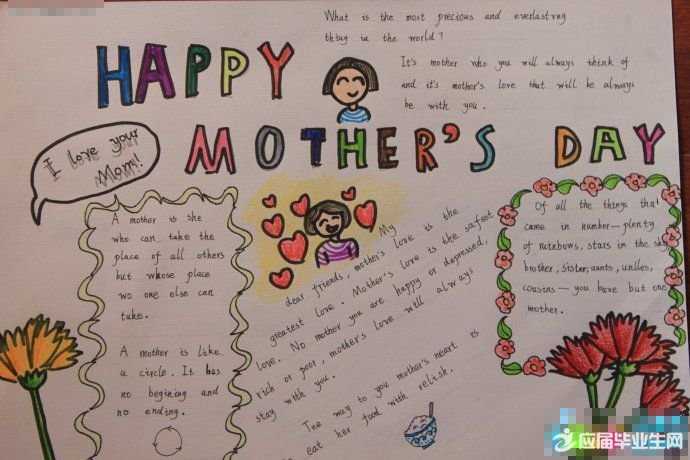 What is the most precious and everlasting
thing in the world?
It's mother who you will always think of
and it's mother's love that will be always
be with you.
HAPPY
MOTHER'S DAY
I love your
Mom!
A mother is she
who can take the
place of all others
but whose place
wo one else can
take.
A mother is like
a circle. It has
no begining and
no ending.
My
dear friends, mother's love is the
greatest love. Mother's love is the safest
love. No mother you are happy or depressed,
rich or poor, mother's love will always
stay with you.
Tee way to you mother's heart is
eat her food with relish.
Of all the things that
came in number—plenty
of rainbows, stars in the sky
brother, sister, aunts, unlles,
cousins— you have but one
mother.
应届毕业生网